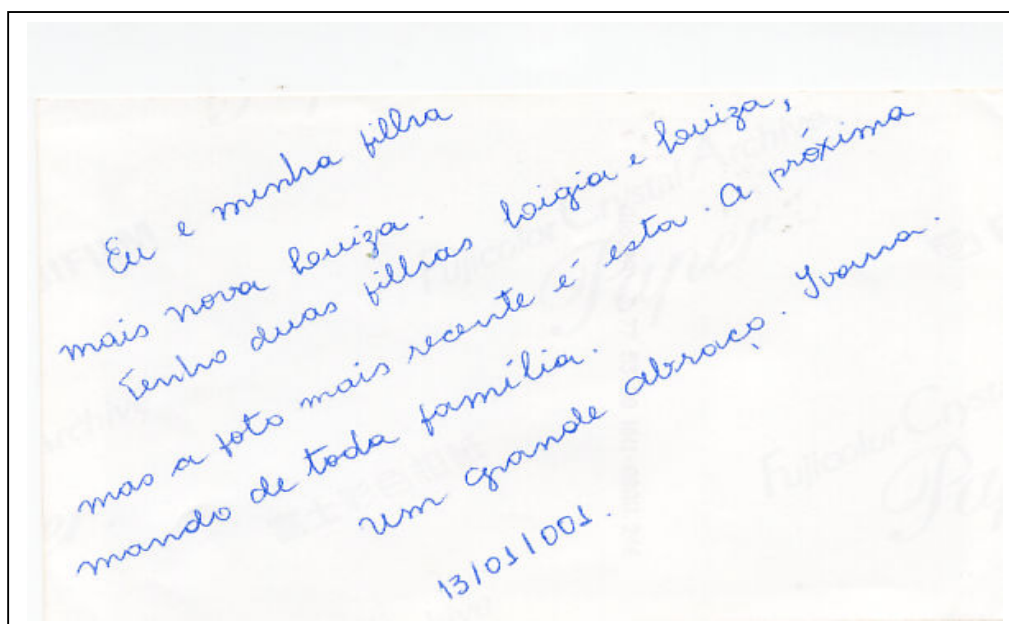 Eu e minha filha
mais nova Luiza.
Tenho duas filhas Ligia e Luiza,
mas a foto mais recente é esta. A próxima
mando de toda família.
Um grande abraço. Ivana.
13/01/001.
Fujicolor Crystal Archive
Fujicolor Crysta